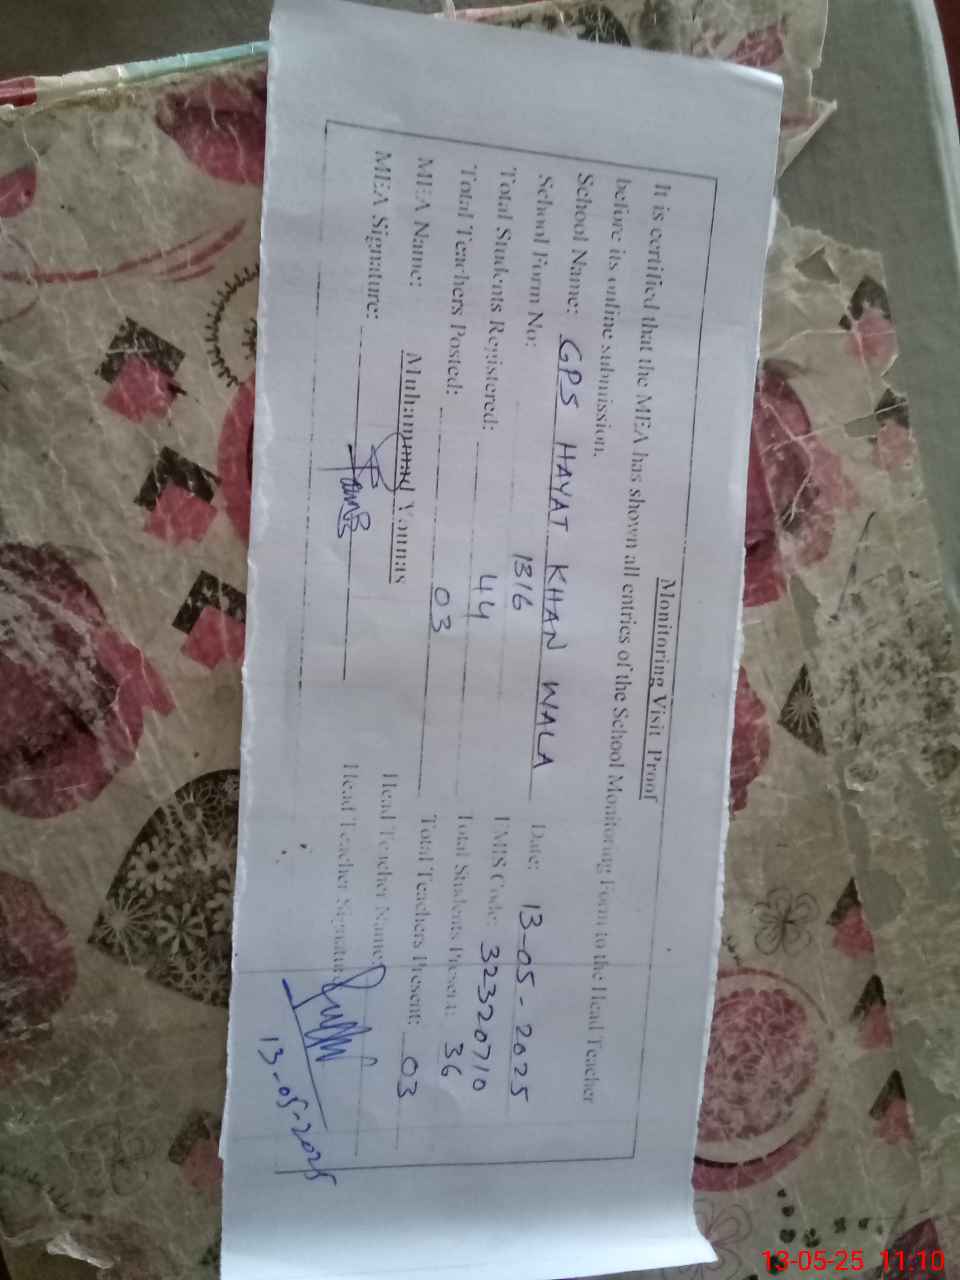 Monitoring Visit Proof
It is certified that the MEA has shown all entries of the School Monitoring Form to the Head Teacher
before its online submission.
School Name: GPS HAYAT KHAN WALA Date: 13-05-2025
School Form No: 1316 EMIS Code: 32320710
Total Students Registered: 44 Total Students Present: 36
Total Teachers Posted: 03 Total Teachers Present: 03
MEA Name: Muhammad Younas Head Teacher Name
MEA Signature: Head Teacher Signature
13-05-2025
13-05-25 11:10